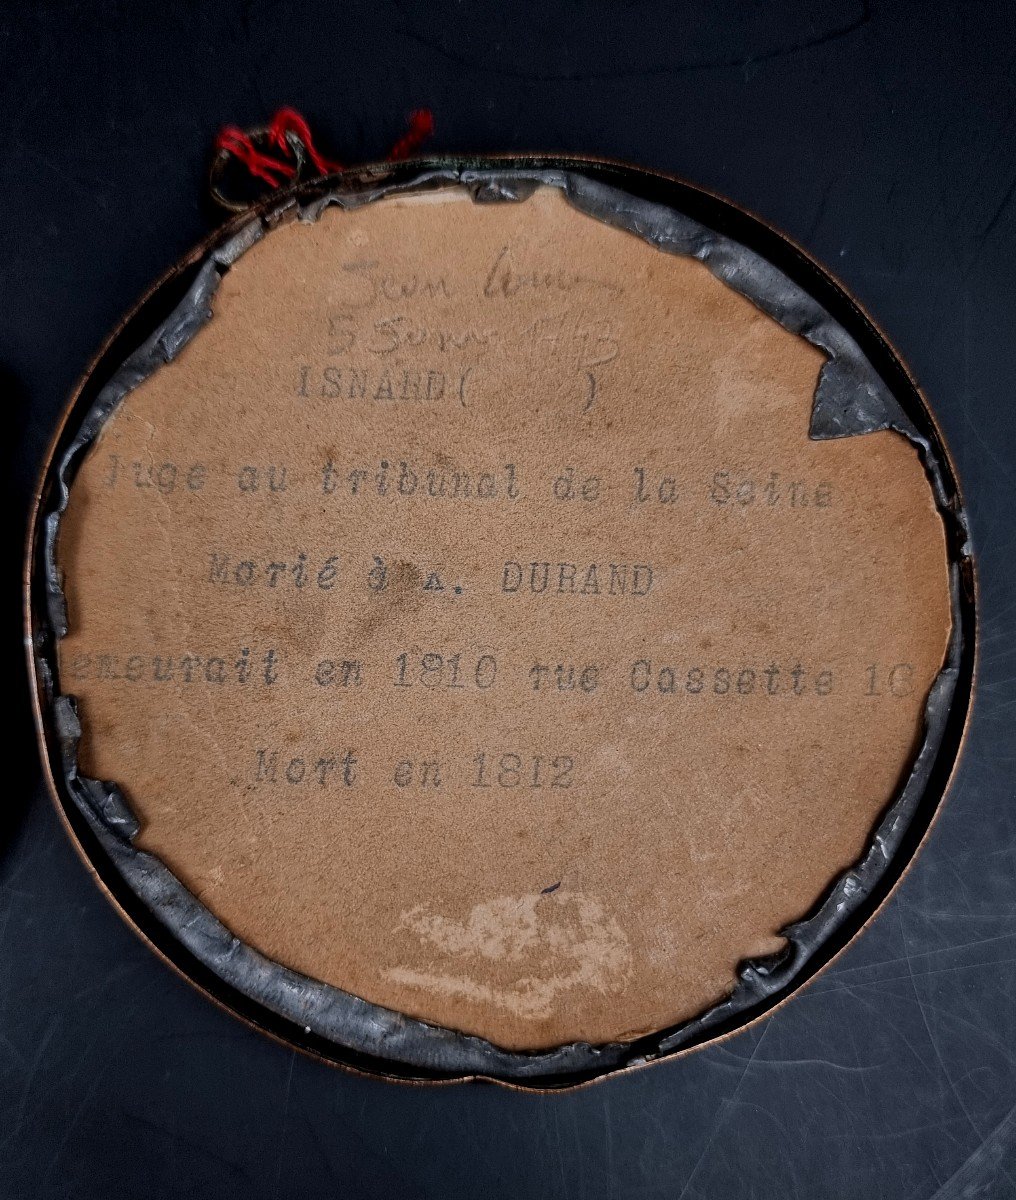 Jean
ISNARD(        )
Juge au tribunal de la Seine
Marié à A. DURAND
demeurait en 1810 rue Cassette
Mort en 1812